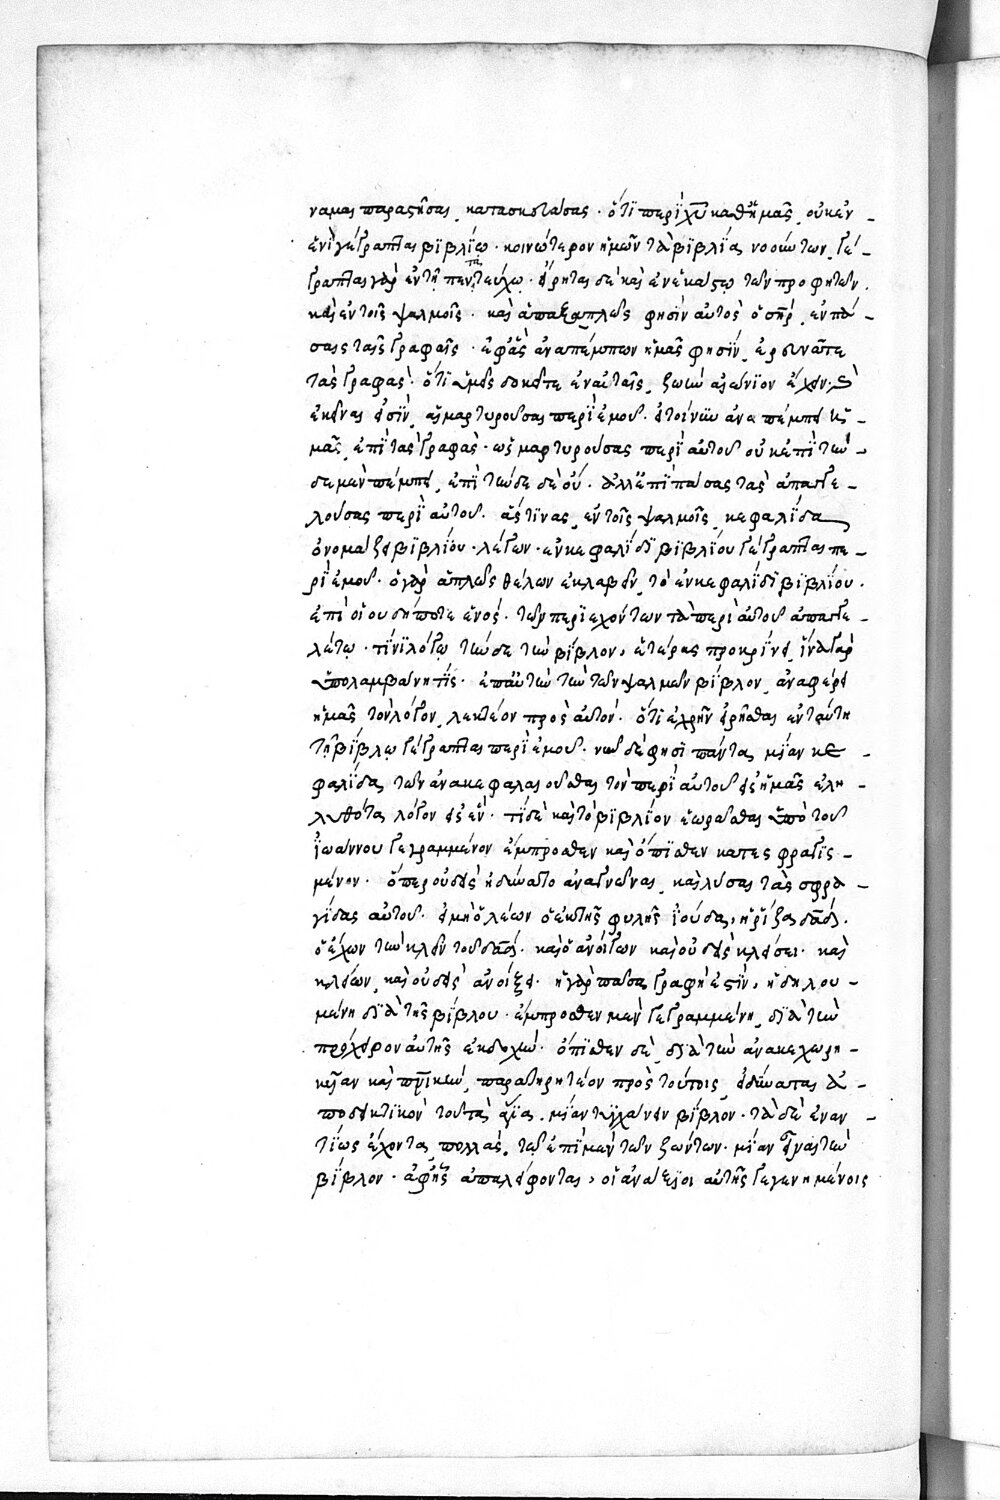 ναμαι παραστῆσαι, κατασκευάσας. ὅτι περὶ χ̅υ̅ καθ' ἡμᾶς, οὐκ ἐν
ἑνὶ γέγραπται βιβλίῳ. κοινώτερον ἡμῶν τὰ βιβλία νοούντων, γέ-
γραπται γὰρ ἐν τῇ πεντατεύχῳ. εἴρηται δὲ καὶ ἐν ἑκάστῳ τῶν προφητῶν.
καὶ ἐν τοῖς ψαλμοῖς. καὶ ἁπαξαπλῶς φησὶν αὐτὸς ὁ σ̅η̅ρ̅, ἐν πά-
σαις ταῖς γραφαῖς. ἐφ' ἃς ἀναπέμπων ἡμᾶς φησὶν, ἐρευνᾶτε
τὰς γραφάς. ὅτι ὑμεῖς δοκεῖτε ἐν αὐταῖς, ζωὴν αἰώνιον ἔχειν. καὶ
ἐκεῖναι εἰσὶν, αἱ μαρτυροῦσαι περὶ ἐμοῦ. εἰ τοίνυν ἀναπέμπει ἡ-
μᾶς, ἐπὶ τὰς γραφάς. ὡς μαρτυρούσας περὶ αὐτοῦ οὐκ ἐπὶ τήν-
δε μὲν πέμπει, ἐπὶ τήνδε δὲ οὔ. ἀλλ' ἐπὶ πάσας τὰς ἀπαγγε-
λούσας περὶ αὐτοῦ. ἅς τινας, ἐν τοῖς ψαλμοῖς, κεφαλίδα
ὀνομάζει βιβλίου. λέγων. ἐν κεφαλίδι βιβλίου γέγραπται πε-
ρὶ ἐμοῦ. ὁ γὰρ ἁπλῶς θέλων ἐκλαβεῖν, τὸ ἐν κεφαλίδι βιβλίου.
ἐπὶ οἱουδήποτε ἑνός. τῶν περιεχόντων τὰ περὶ αὐτοῦ ἀπαγγε-
λέτω. τίνι λόγῳ τήνδε τὴν βίβλον, ἑτέρας προκρίνει, ἵνα γὰρ
ὑπολαμβάνῃ τίς. ἐπ' αὐτὴν τὴν τῶν ψαλμῶν βίβλον, ἀναφέρει
ἡμᾶς τὸν λόγον, λεκτέον πρὸς αὐτόν. ὅτι ἐχρῆν εἰρῆσθαι ἐν ταύτῃ
τῇ βίβλῳ γέγραπται περὶ ἐμοῦ. νῦν δέ φησι πάντα, μίαν κε-
φαλίδα, τῶν ἀνακεφαλαιοῦσθαι τὸν περὶ αὐτοῦ εἰς ἡμᾶς ἐλη-
λυθότα λόγον εἰς ἕν. τί δὲ καὶ τὸ βιβλίον ἑωρᾶσθαι ὑπὸ τοῦ
ἰωάννου γεγραμμένον ἔμπροσθεν καὶ ὄπισθεν κατεσφραγισ-
μένον. ὅπερ οὐδεὶς ἠδύνατο ἀναγνῶναι, καὶ λῦσαι τὰς σφρα-
γίδας αὐτοῦ. εἰ μὴ ὁ λέων ὁ ἐκ τῆς φυλῆς ἰούδα, ἡ ῥίζα δα̅δ̅.
ὁ ἔχων τὴν κλεῖν τοῦ δα̅δ̅. καὶ ὁ ἀνοίγων καὶ οὐδεὶς κλείσει. καὶ
κλείων, καὶ οὐδεὶς ἀνοίξει. ἡ γὰρ πᾶσα γραφή ἐστιν, ἡ δηλου-
μένη διὰ τῆς βίβλου. ἔμπροσθεν μὲν γεγραμμένη, διὰ τὴν
πρόχειρον αὐτῆς ἐκδοχήν. ὄπισθεν δὲ, διὰ τὴν ἀνακεχωρη-
κυῖαν καὶ π̅ν̅ικὴν, παρατηρητέον πρὸς τούτοις, εἰ δύναται ἀ-
ποδεικτικὸν τοῦ τὰ ἅγια, μίαν τυγχάνειν βίβλον. τὰ δὲ ἐναν-
τίως ἔχοντα, πολλάς. τῷ ἐπὶ μὲν τῶν ζώντων. μίαν εἶναι τὴν
βίβλον. ἀφ' ἧς ἀπαλείφονται, οἱ ἀνάξιοι αὐτῆς γεγενημένοις